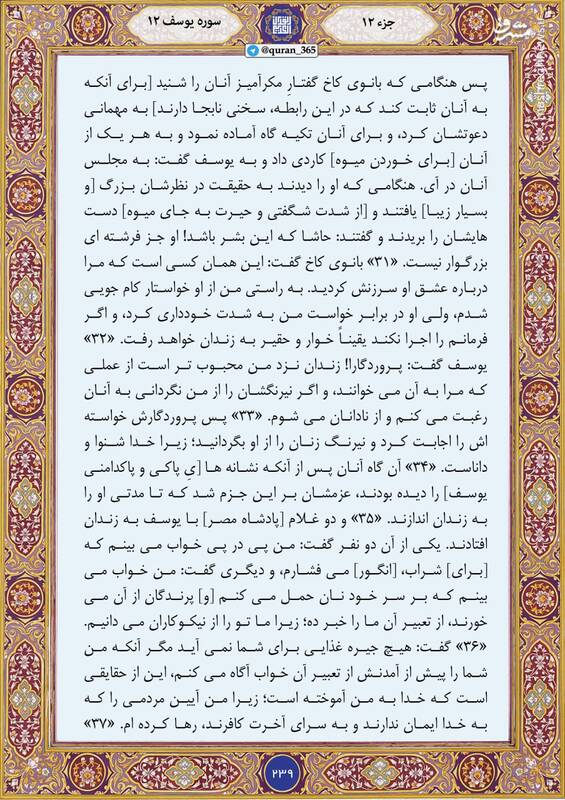 سوره یوسف ۱۲
جزء ۱۲
@quran_365
پس هنگامی که بانوی کاخ گفتارِ مکرآمیز آنان را شنید [برای آنکه
به آنان ثابت کند که در این رابطه، سخنی نابجا دارند] به مهمانی
دعوتشان کرد، و برای آنان تکیه گاه آماده نمود و به هر یک از
آنان [برای خوردن میوه] کاردی داد و به یوسف گفت: به مجلس
آنان در آی. هنگامی که او را دیدند به حقیقت در نظرشان بزرگ [و
بسیار زیبا] یافتند و [از شدت شگفتی و حیرت به جای میوه] دست
هایشان را بریدند و گفتند: حاشا که این بشر باشد! او جز فرشته ای
بزرگوار نیست. «۳۱» بانوی کاخ گفت: این همان کسی است که مرا
درباره عشق او سرزنش کردید. به راستی من از او خواستار کام جویی
شدم، ولی او در برابر خواست من به شدت خودداری کرد، و اگر
فرمانم را اجرا نکند یقیناً خوار و حقیر به زندان خواهد رفت. «۳۲»
یوسف گفت: پروردگارا! زندان نزد من محبوب تر است از عملی
که مرا به آن می خوانند، و اگر نیرنگشان را از من نگردانی به آنان
رغبت می کنم و از نادانان می شوم. «۳۳» پس پروردگارش خواسته
اش را اجابت کرد و نیرنگ زنان را از او بگردانید؛ زیرا خدا شنوا و
داناست. «۳۴» آن گاه آنان پس از آنکه نشانه ها [یِ پاکی و پاکدامنی
یوسف] را دیده بودند، عزمشان بر این جزم شد که تا مدتی او را
به زندان اندازند. «۳۵» و دو غلام [پادشاه مصر] با یوسف به زندان
افتادند. یکی از آن دو نفر گفت: من پی در پی خواب می بینم که
[برای] شراب، [انگور] می فشارم، و دیگری گفت: من خواب می
بینم که بر سر خود نان حمل می کنم [و] پرندگان از آن می
خورند، از تعبیر آن ما را خبر ده؛ زیرا ما تو را از نیکوکاران می دانیم.
«۳۶» گفت: هیچ جیره غذایی برای شما نمی آید مگر آنکه من
شما را پیش از آمدنش از تعبیر آن خواب آگاه می کنم، این از حقایقی
است که خدا به من آموخته است؛ زیرا من آیین مردمی را که
به خدا ایمان ندارند و به سرای آخرت کافرند، رها کرده ام. «۳۷»
۲۳۹